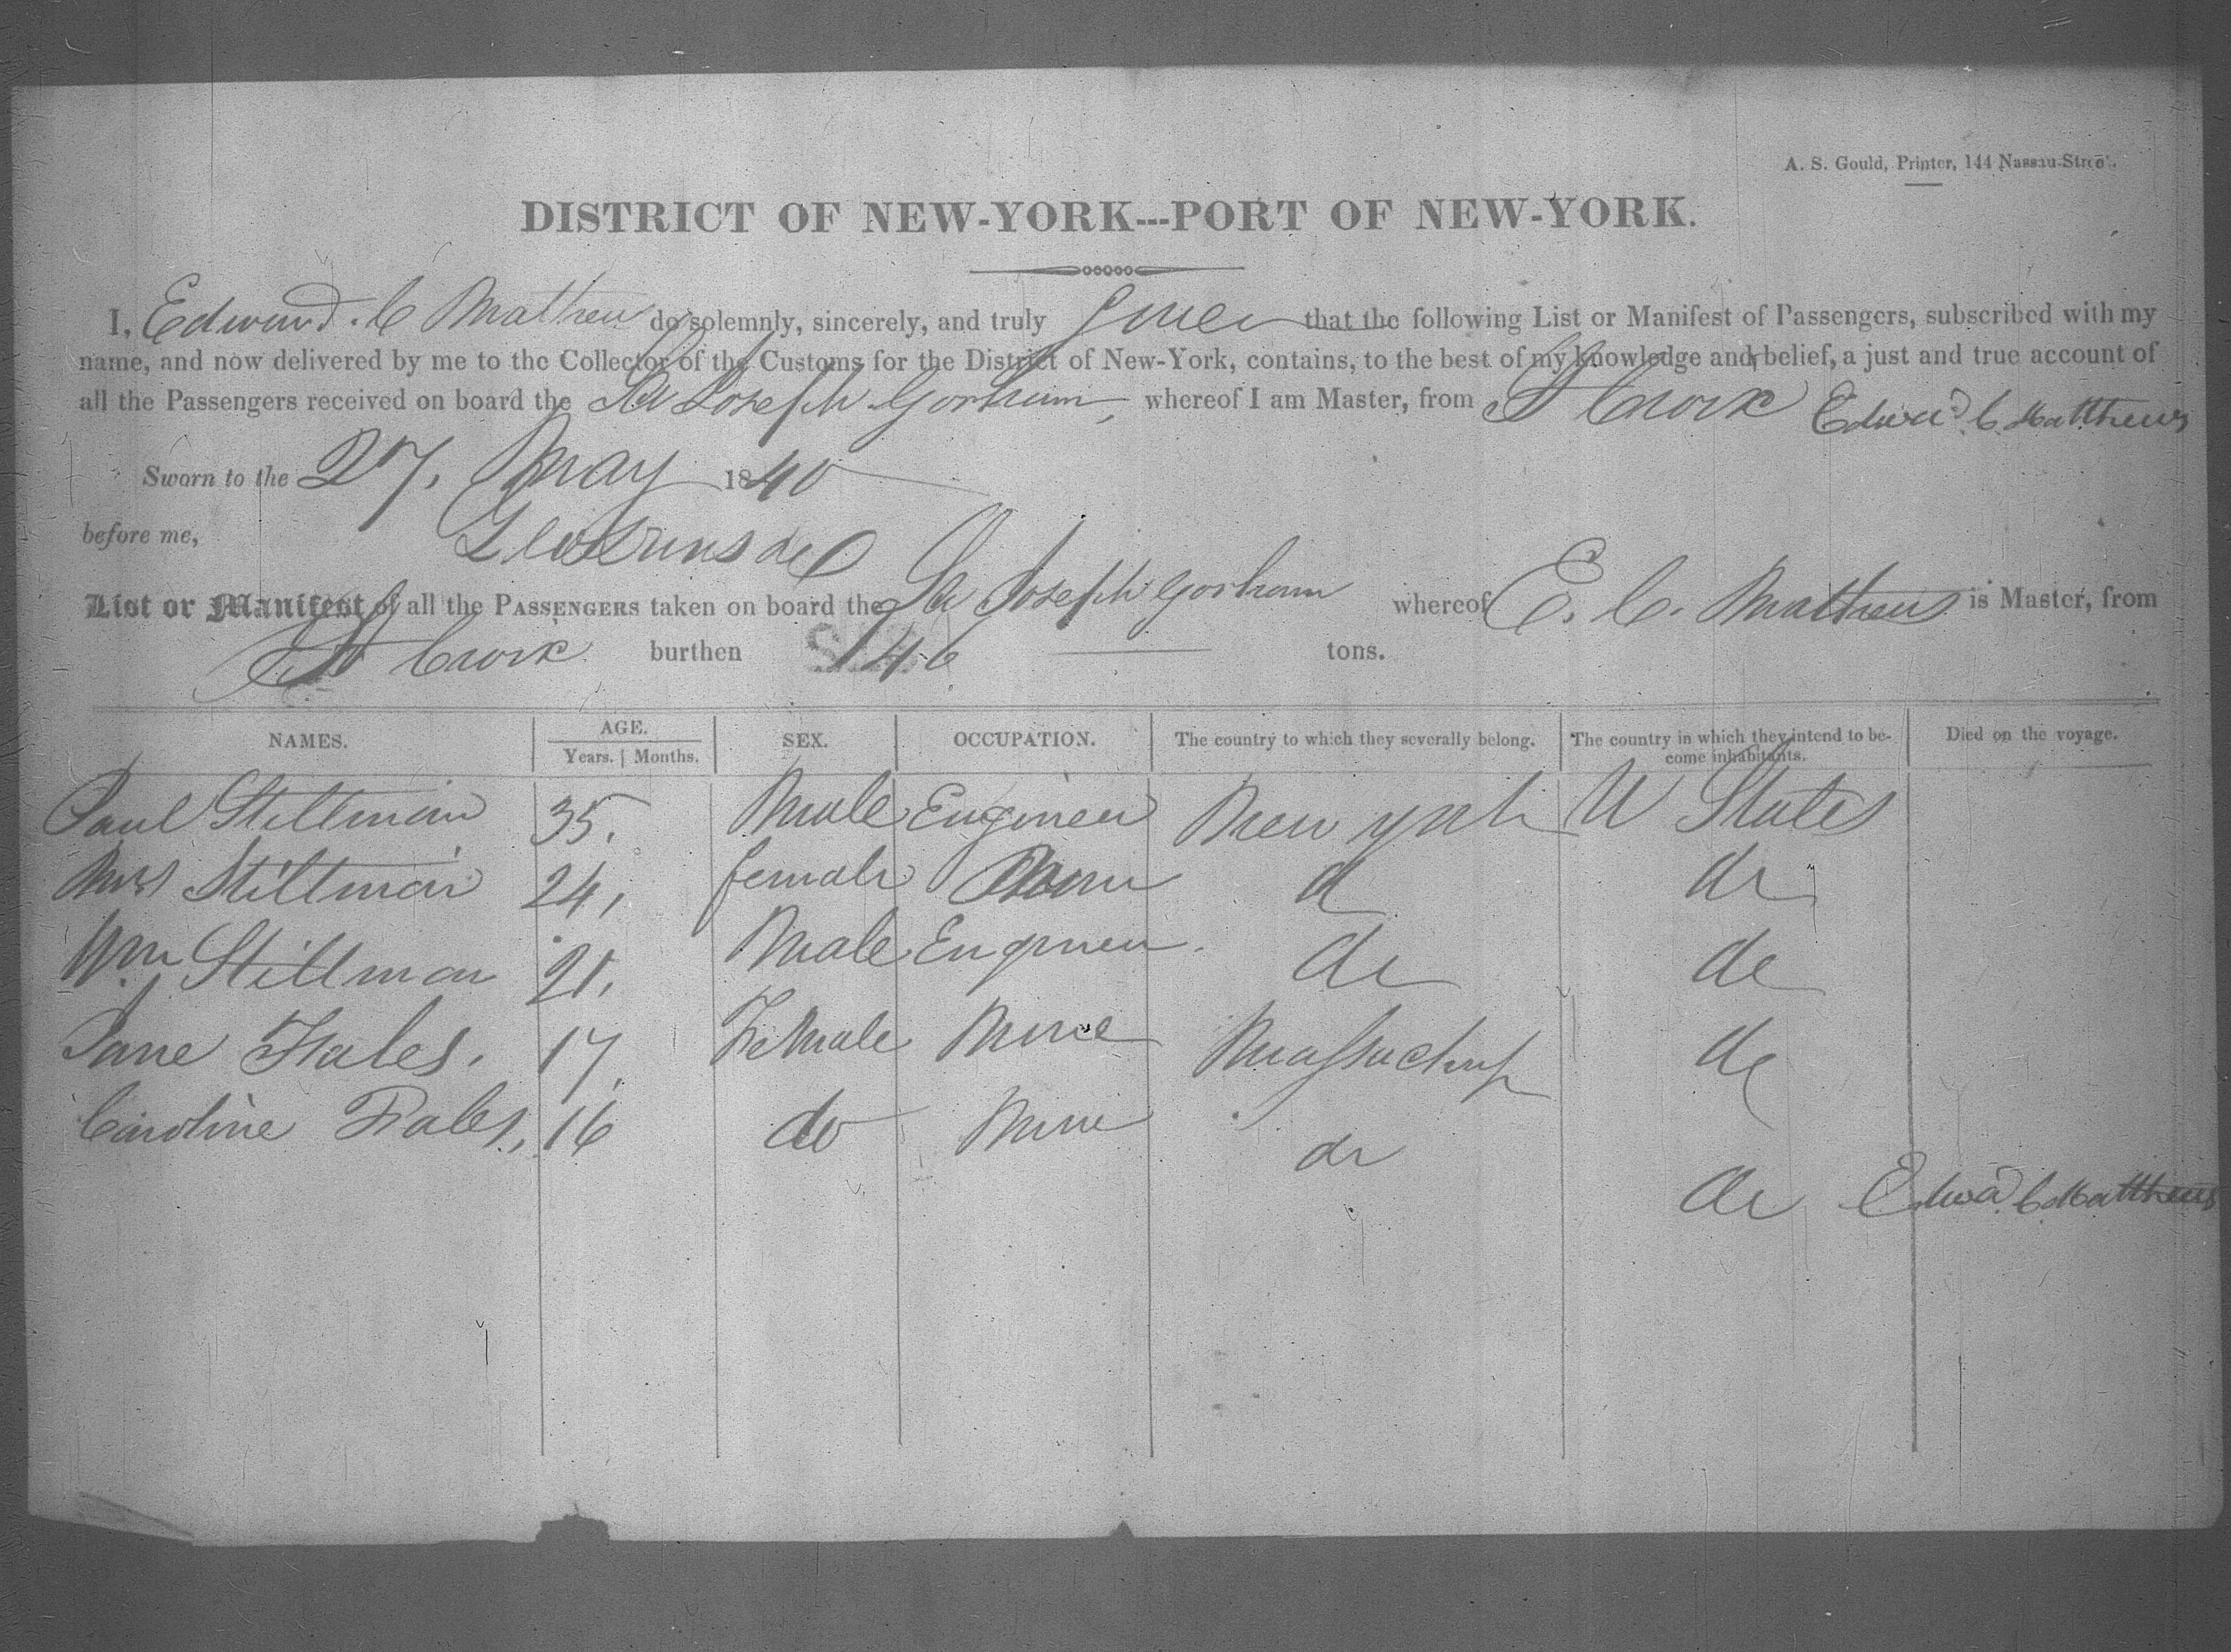 A. S. Gould, Printer, 144 Nassau-Street.
DISTRICT OF NEW-YORK---PORT OF NEW-YORK.
I, Edward. C Mathew do solemnly, sincerely, and truly that the following List or Manifest of Passengers, subscribed with my
name, and now delivered by me to the Collector of the Customs for the District of New-York, contains, to the best of my knowledge and belief, a just and true account of
all the Passengers received on board the Joseph Gorham, whereof I am Master, from St Croix Edwad C Matthews
Sworn to the 27, May 1840
before me,
List or Manifest of all the PASSENGERS taken on board the Joseph Gorham whereof E. C. Mathews is Master, from
St Croix burthen 146 tons.
NAMES. AGE. SEX. OCCUPATION. The country to which they severally belong. The country in which they intend to be-come inhabitants. Died on the voyage.
Years. Months.
Paul Stillman 35. Male Engineer New york U States
Mrs Stillman 24, female None do do
Wm Stillman 21, Male Engineer do do
Jane Fales. 17, Female None Massachus do
Caroline Fales, 16 do None do
do Edwad C Matthews